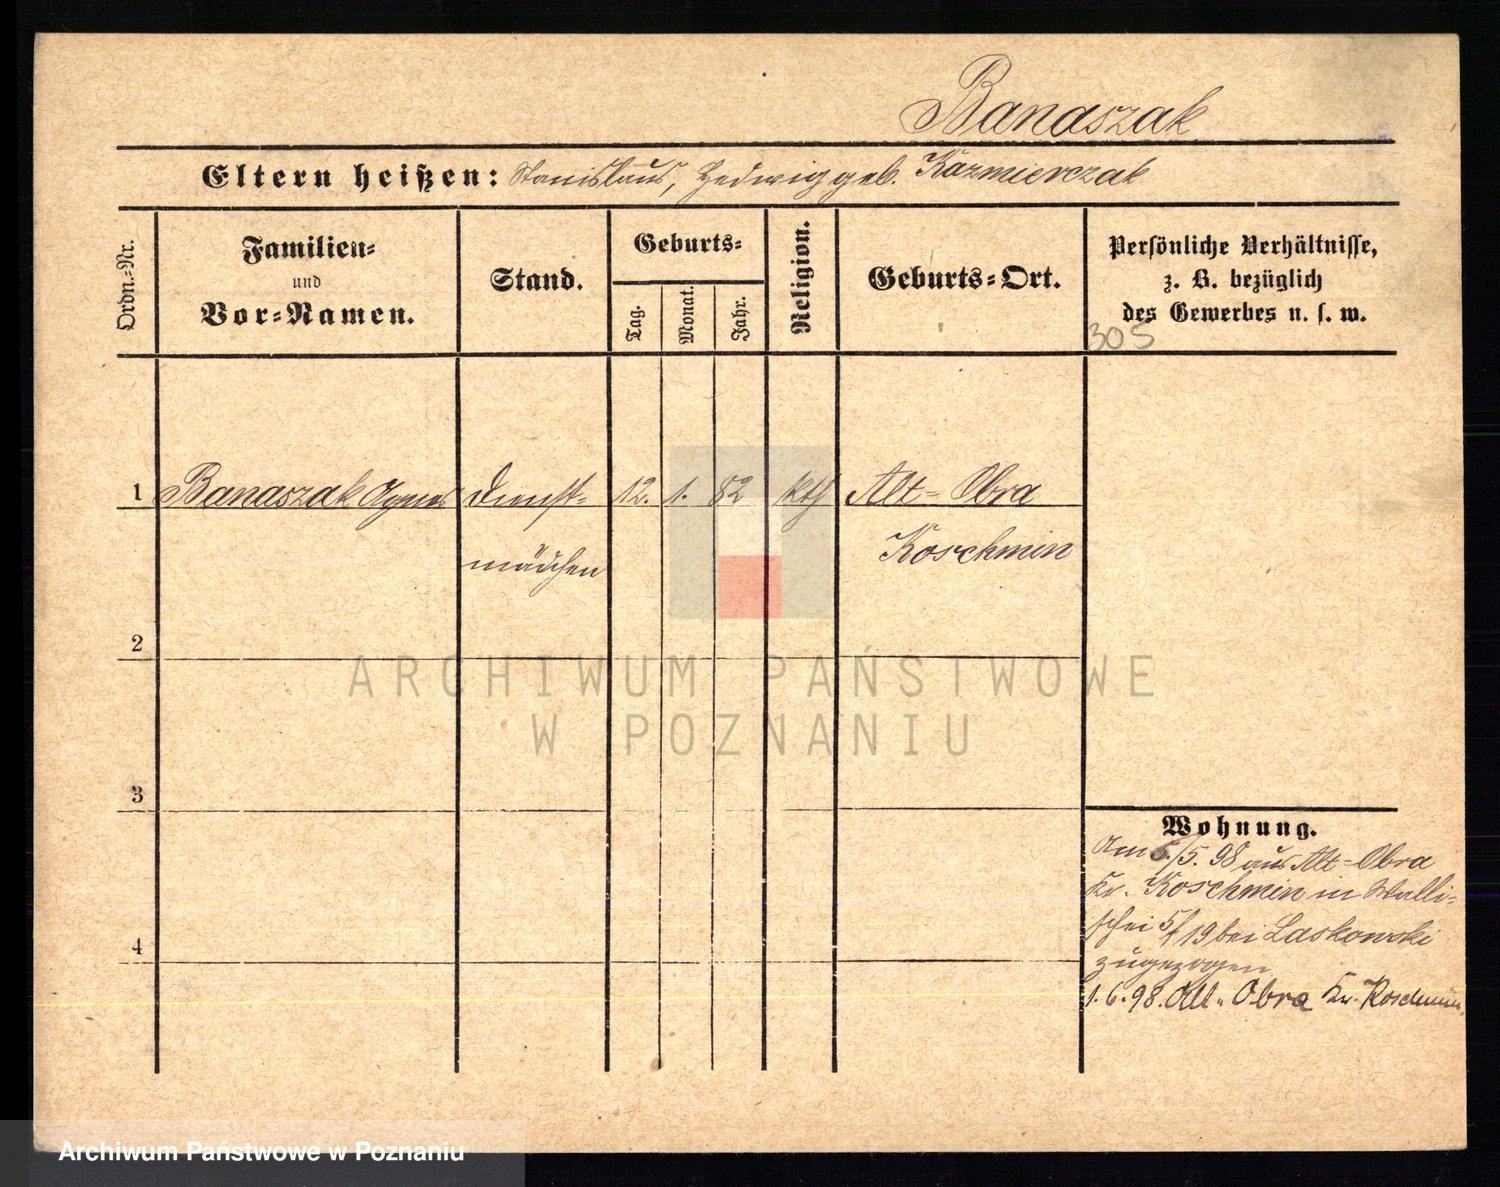 Banaszak
Eltern heißen: Stanislaus, Hedwig geb. Kazmierczak
Ordn.-Nr.
Familien-
und
Vor-Namen.
Stand.
Geburts-
Tag.
Monat.
Jahr.
Religion.
Geburts-Ort.
Persönliche Verhältnisse,
z. B. bezüglich
des Gewerbes u. s. w.
305
1 Banaszak Agnes Dienst- 12. 1. 82 kth Alt-Obra
mädchen Koschmin
2
3
4
Wohnung.
Am 5./5. 98 aus Alt-Obra
Kr. Koschmin in Walli-
schei 5/19 bei Laskowski
zugezogen
1.6.98. Alt-Obra Kr. Koschmin
ARCHIWUM PAŃSTWOWE
W POZNANIU
Archiwum Państwowe w Poznaniu